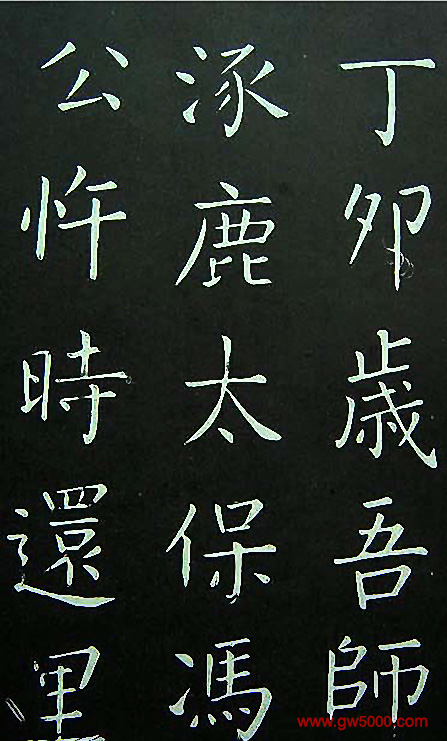 丁夘歲吾師
涿鹿太保馮
公忤時還里
www.gw5000.com